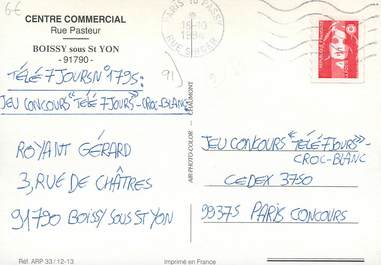 6€
CENTRE COMMERCIAL
Rue Pasteur
BOISSY sous St YON
- 91790 -
91)
TÉLÉ 7 JOURS N° 1795:
JEU CONCOURS "TÉLÉ 7 JOURS" - CROC-BLANC
ROYANT GÉRARD
3, RUE DE CHÂTRES
91790 BOISSY SOUS ST YON
Réf. ARP 33 / 12-13
Imprimé en France
AIR-PHOTO-COLOR - CHAUMONT
PARIS 10 PASSY
16-10
1994
RUE SINGER
JEU CONCOURS "TÉLÉ 7 JOURS" -
CROC-BLANC
CEDEX 3750
99375 PARIS CONCOURS